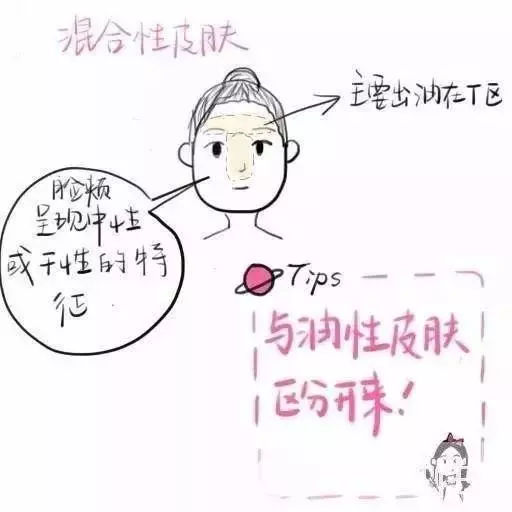 混合性皮肤
主要出油在T区
脸颊
呈现中性
或干性的特
征
Tips
与油性皮肤
区分开来！